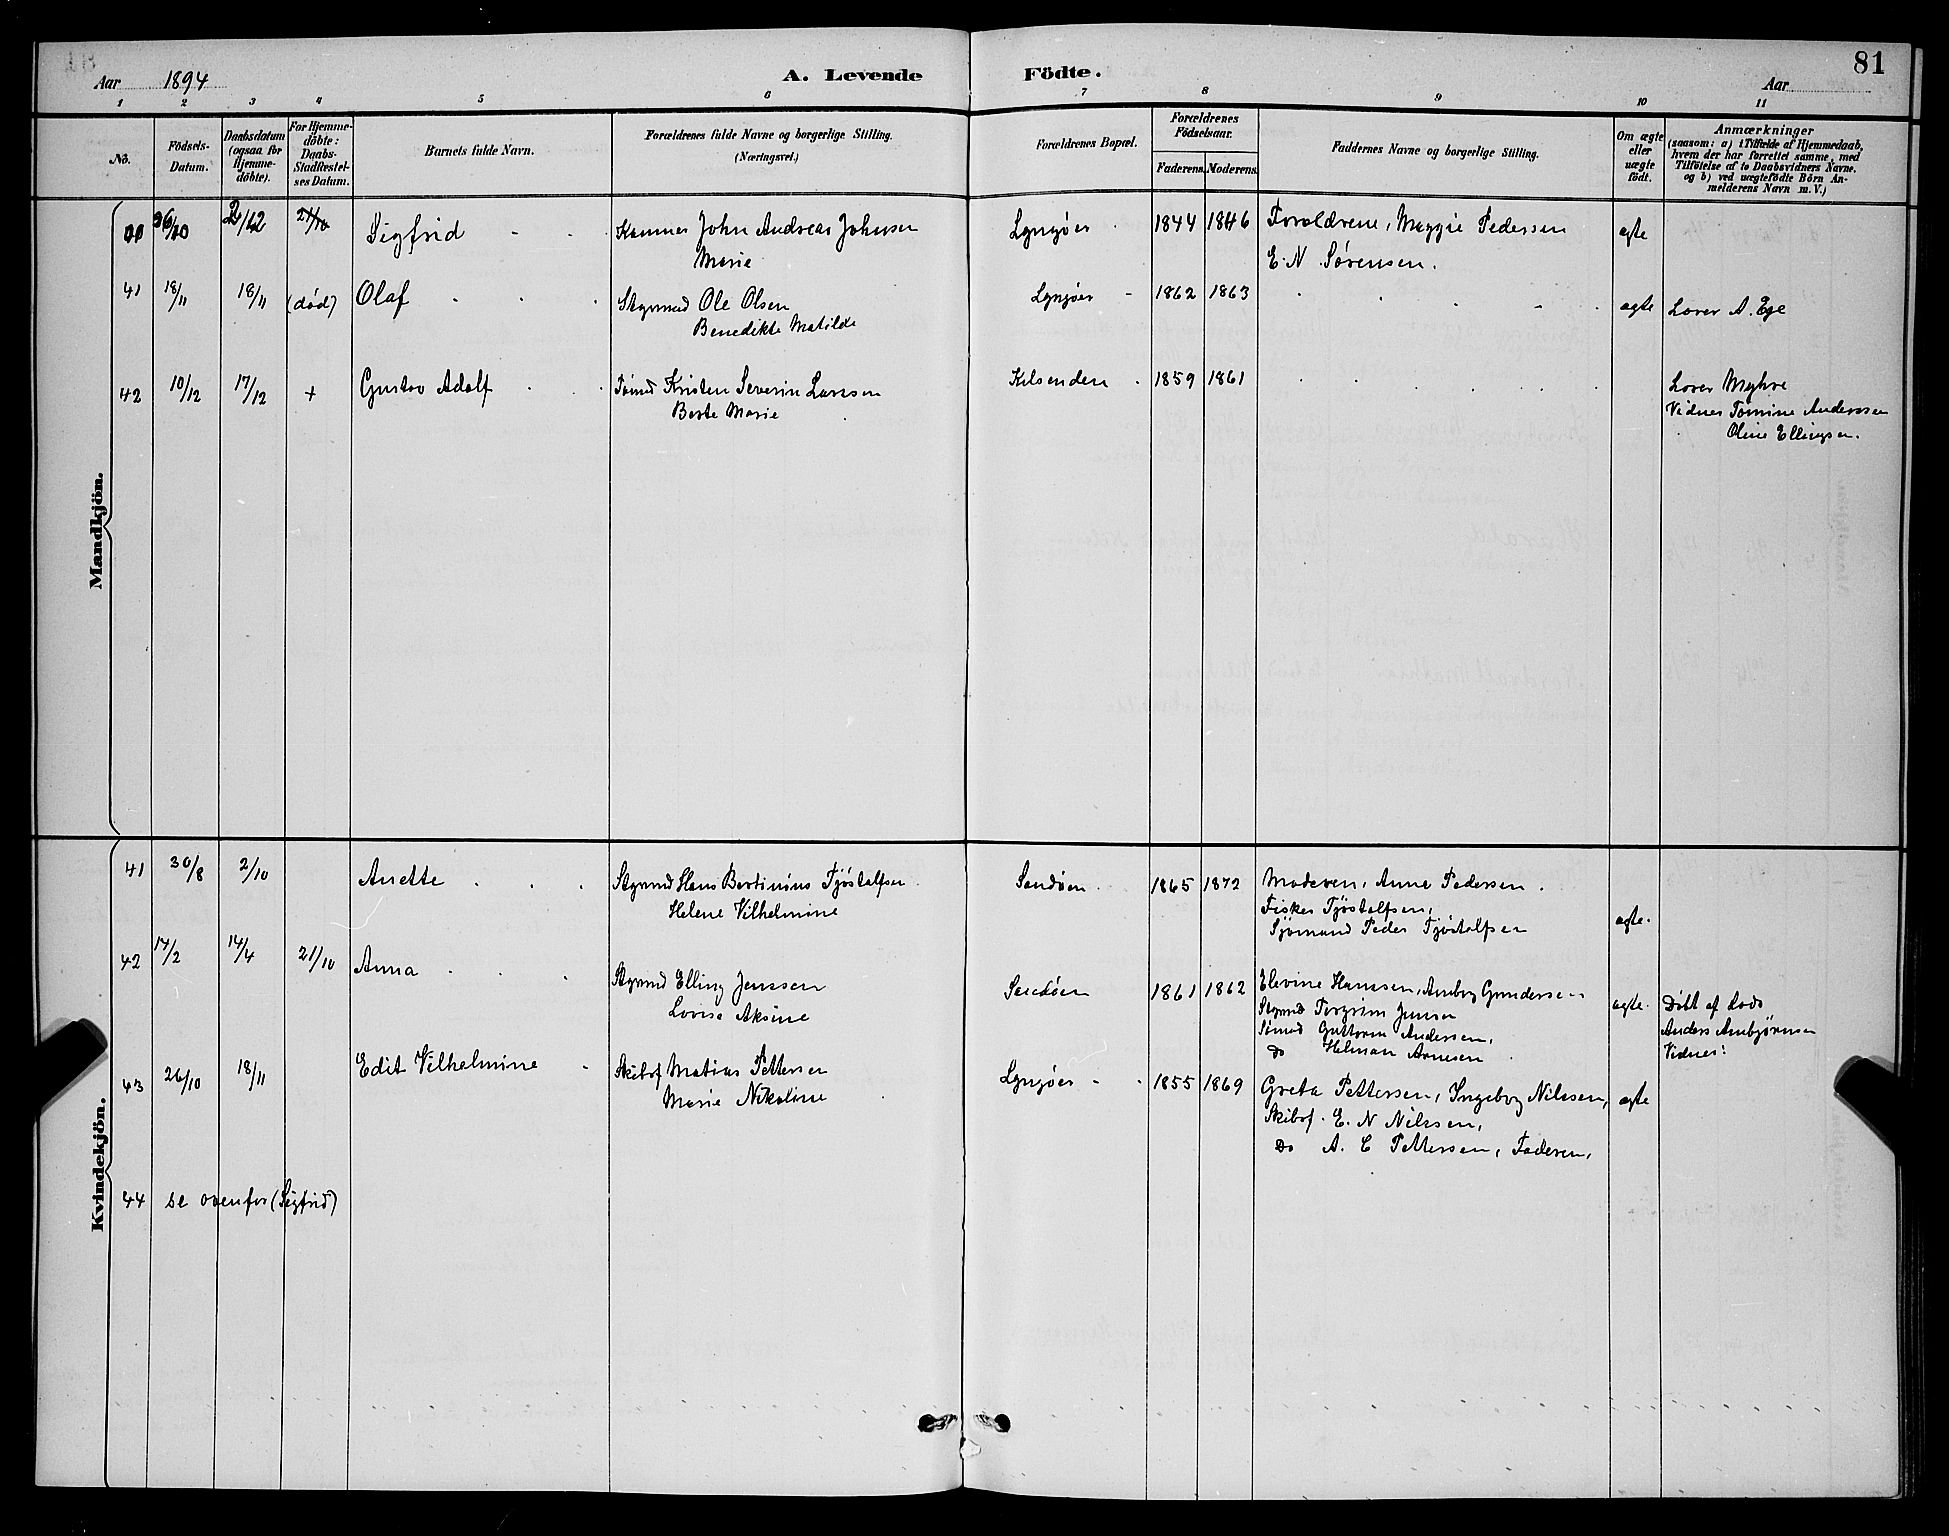 81
Aar 1894
A. Levende Födte.
Aar
1 2 3 4 5 6 7 8 9 10 11
No.
Födsels-Datum.
Daabsdatum (ogsaa for Hjemme-döbte).
For Hjemme-döbte: Daabs-Stadfæstel-ses Datum.
Barnets fulde Navn.
Forældrenes fulde Navne og borgerlige Stilling.
(Næringsvei.)
Forældrenes Bopæl.
Forældrenes Födselsaar.
Faderens. Moderens.
Faddernes Navne og borgerlige Stilling.
Om ægte eller uægte födt.
Anmærkninger
(saasom: a) i Tilfælde af Hjemmedaab,
hvem der har forrettet samme, med
Tilföielse af to Daabsvidners Navne.
og b) ved uægtefödte Börn An-
melderens Navn m. V.)
Mandkjön.
26/10 2/12 21/10 Sigfrid John Andreas Johnsen Lyngöer 1844 1846 Forældrene, Maggie Pedersen ægte
Marie E. N. Sørensen.
41 18/11 18/11 (död) Olaf Styrmd Ole Olsen Lyngöer 1862 1863 ægte Lærer A. Ege
Benedikte Matilde
42 10/12 17/12 + Gustav Adolf Sömd Kristen Severin Larssen Kilsenden 1859 1861 Lærer Myhre
Berte Marie Vidner Tomine Anderssen
Oline Ellingsen.
Kvindekjön.
41 30/8 2/10 Anette Styrmd Hans Bertinius Tjöstolfsen Sandöen 1865 1872 Moderen, Anne Pedersen.
Helene Vilhelmine Fisker Tjöstolfsen, ægte.
Sjömand Peder Tjöstolfsen
42 14/2 14/4 21/10 Anna Styrmd Elling Jenssen Sandöen 1861 1862 Elevine Hanssen, Ambrg Gundersen ægte. Döbt af Lods
Lovise Aksine Styrmd Torgrim Jensen Anders Ambjörnsen
Sömd Guttorm Andersen, Vidner:
Do Helman Arnesen
43 26/10 18/11 Edit Vilhelmine Skibsf Matias Pettersen Lyngöer 1855 1869 Greta Pettersen, Ingeborg Nilssen, ægte
Marie Nikoline Skibsf. E. N Nilssen,
Do A. C Pettersen, Faderen,
44 se ovenfor (Sigfrid)